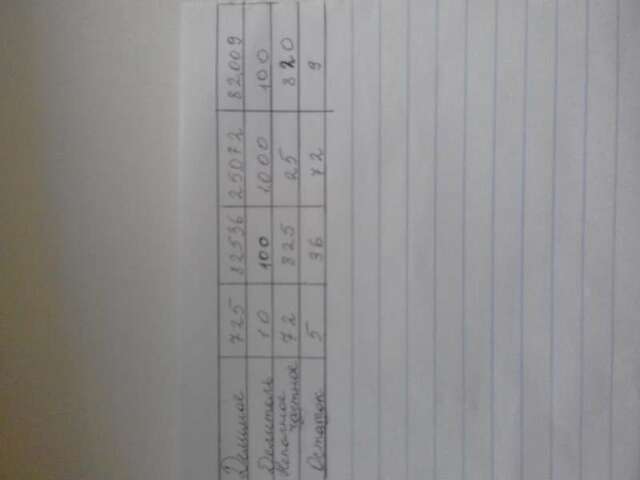 Делимое 725 82536 25072 82009
Делитель 10 100 1000 100
Неполное
частное 72 825 25 820
Остаток 5 36 72 9